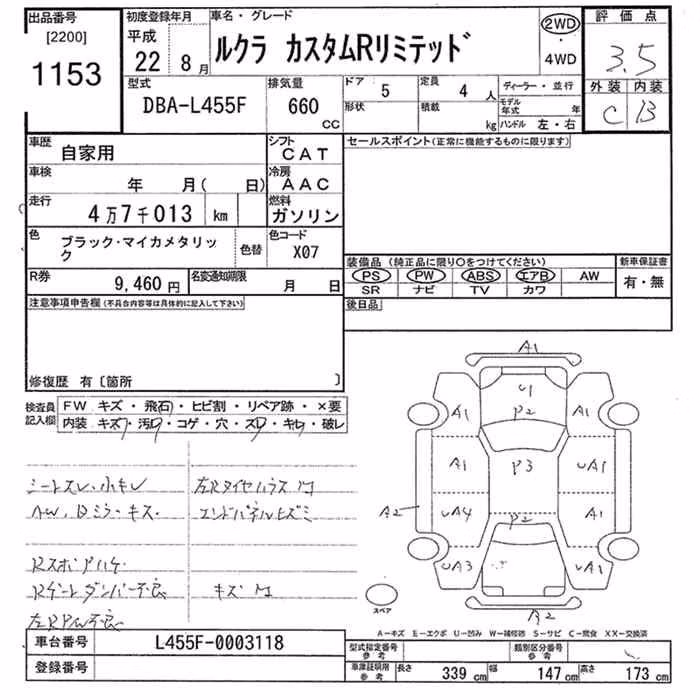 出品番号
[2200]
1153
初度登録年月
平成
22年 8月
車名・グレード
ルクラ カスタムRリミテッド
2WD
・
4WD
評価点
3.5
外装 内装
C B
型式
DBA-L455F
排気量
660
cc
ドア 5
形状
定員 4人
積載 kg
ディーラー・並行
モデル年式 年
ハンドル 左・右
車歴
自家用
シフト
CAT
車検
年 月( 日)
冷房
AAC
走行
4万7千013 km
燃料
ガソリン
色
ブラック・マイカメタリック
色替
色コード
X07
R券
9,460円
名変通知期限
月 日
セールスポイント(正常に機能するものに限ります)
装備品 (純正品に限り○をつけてください)
新車保証書
PS PW ABS エアB AW
SR ナビ TV カワ
有・無
後日品
注意事項申告欄(不具合内容等は具体的に記入して下さい)
修復歴 有〔箇所 〕
検査員記入欄
FW キズ・飛石・ヒビ割・リペア跡・×要
内装 キズ・汚・コゲ・穴・スレ・キレ・破レ
シートスレ、小キレ
AW、Bミラーキズ
Rスポ アハゲ
Rゲートダンパー不良
左R PW不良
左RタイヤハウスM
エンドパネルヒズミ
キズM
A1
U1
A1 P2 A1
A1 P3 UA1
A2 UA4 P2 A1
UA3 UA1
A2
スペア
A-キズ E-エクボ U-凹み W-補修跡 S-サビ C-腐食 XX-交換済
車台番号
L455F-0003118
登録番号
型式指定番号
参考
類別区分番号
参考
車庫証明用
参考
長さ 339cm 幅 147cm 高さ 173cm